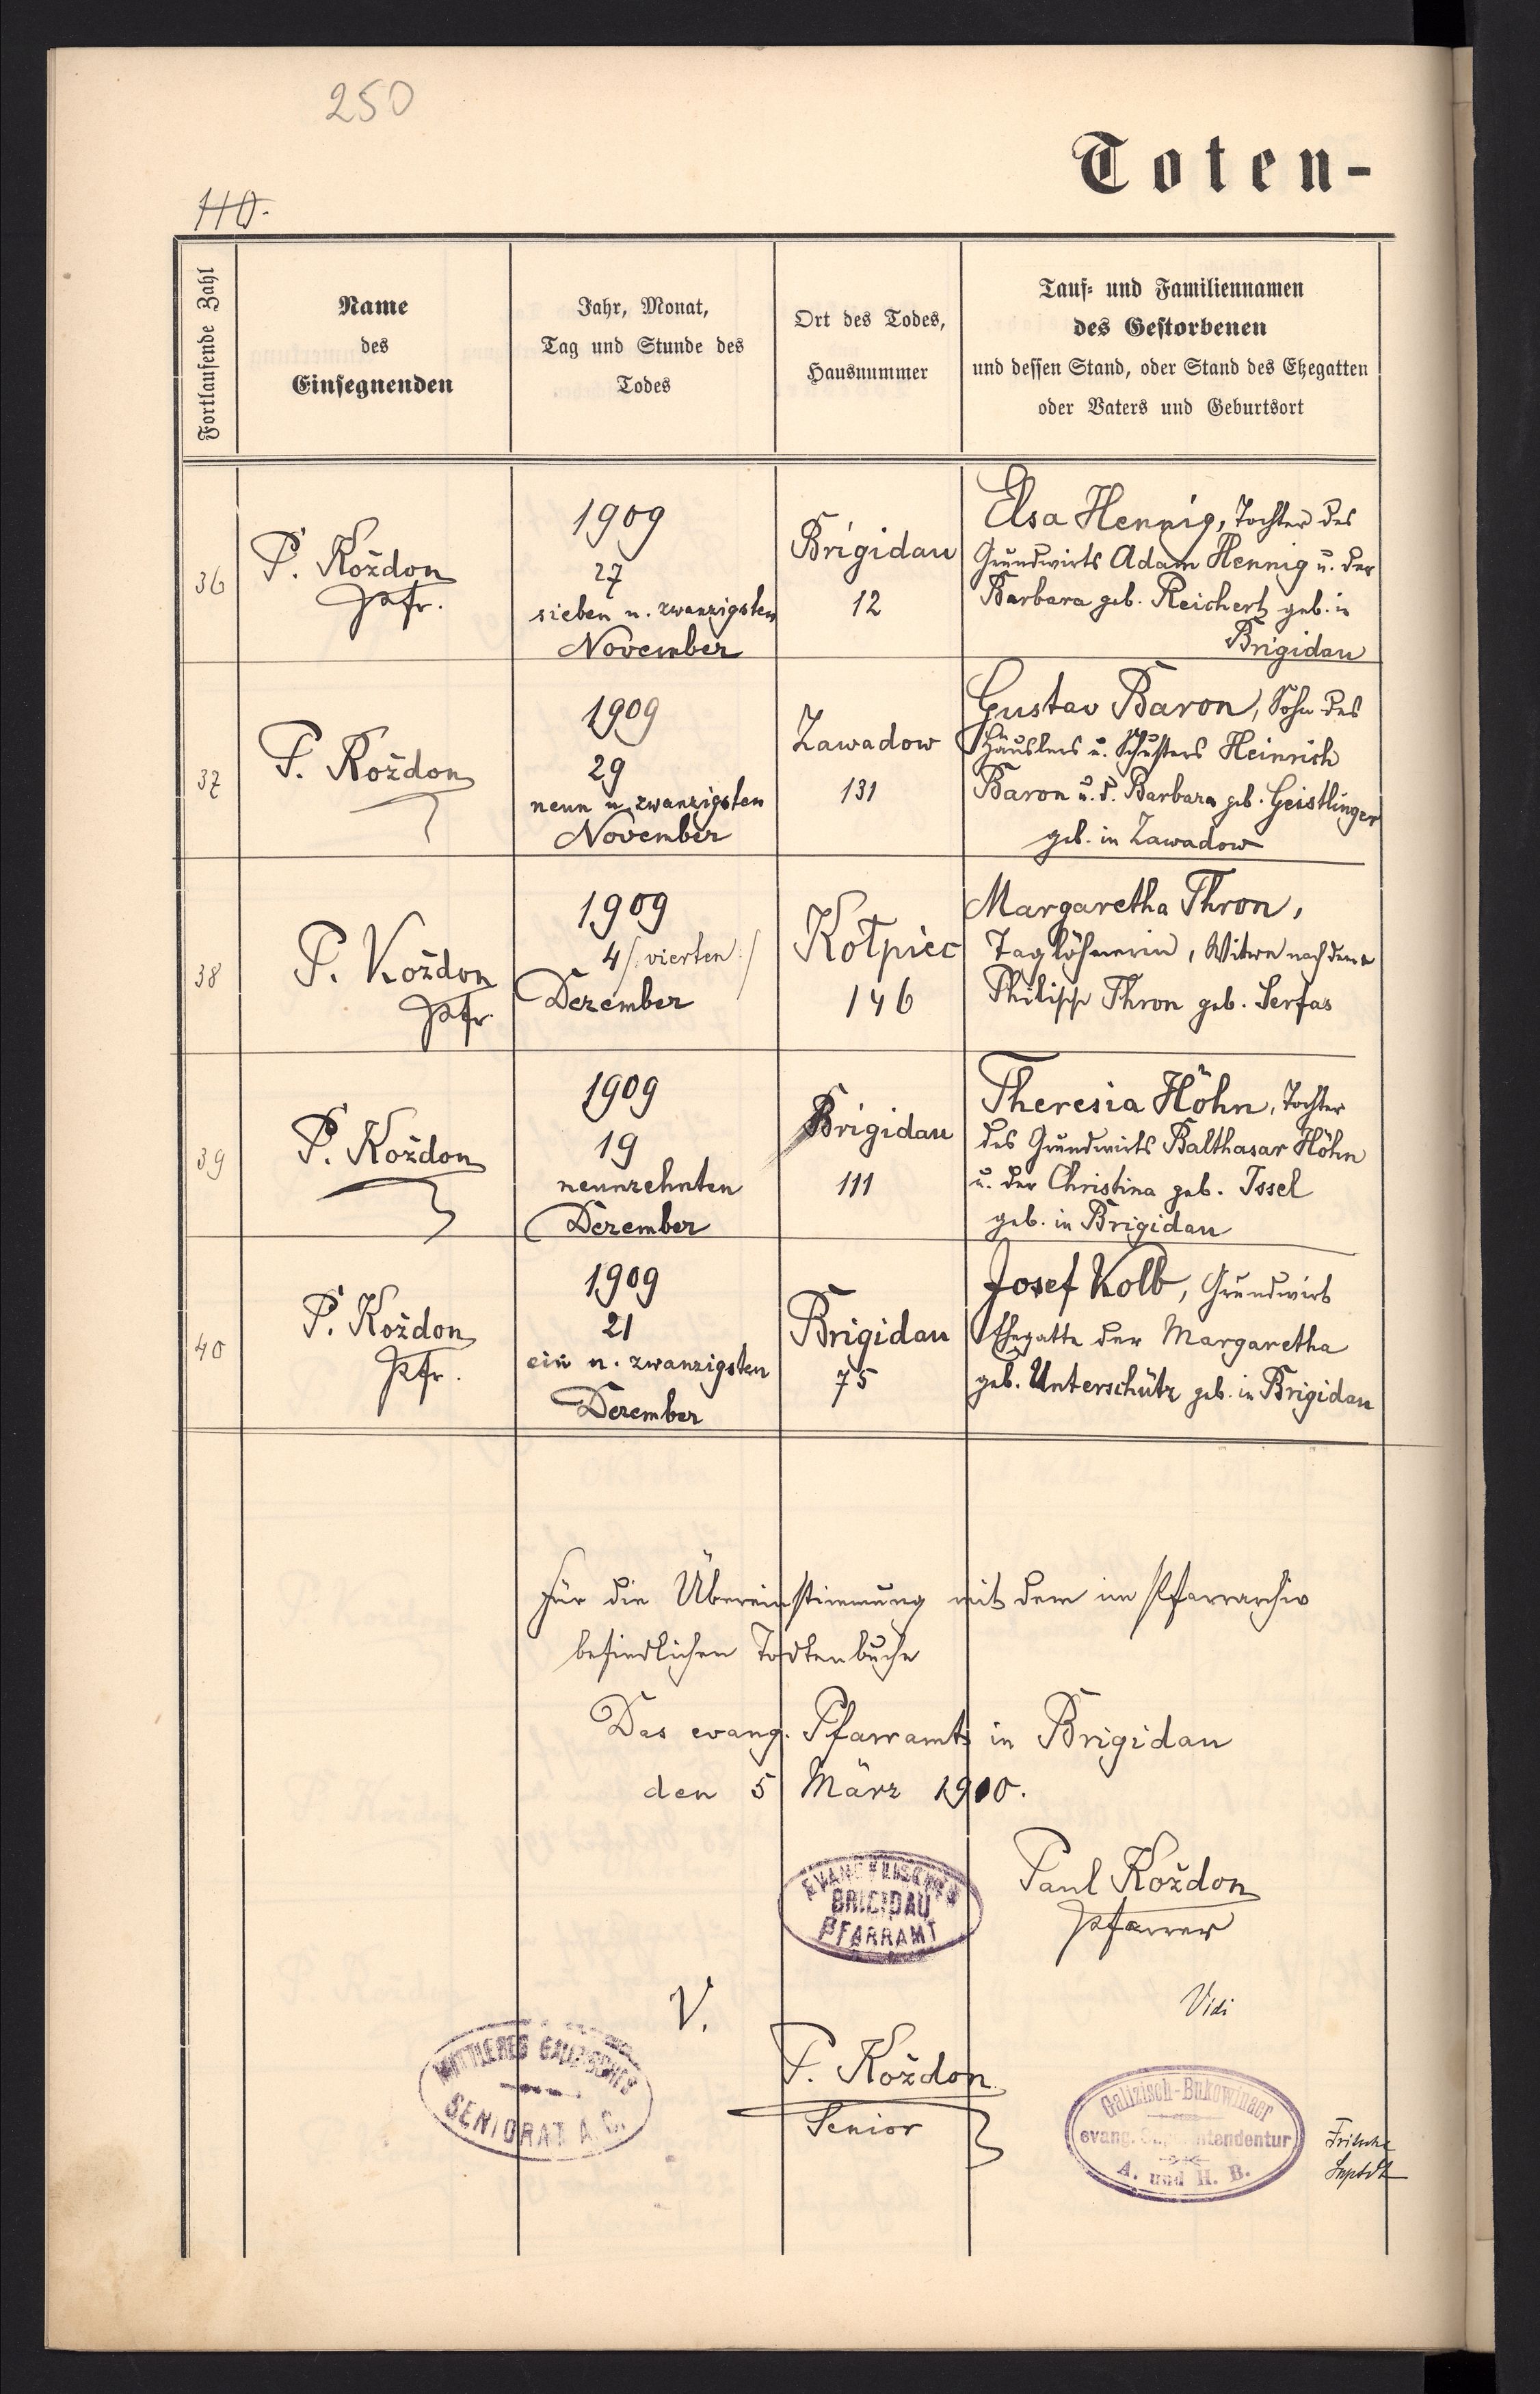 250
110.
Toten-
Fortlaufende Zahl
Name
des
Einsegnenden
Jahr, Monat,
Tag und Stunde des
Todes
Ort des Todes,
Hausnummer
Tauf- und Familiennamen
des Gestorbenen
und dessen Stand, oder Stand des Ehegatten
oder Vaters und Geburtsort
36
P. Koždon
Pfr.
1909
27
sieben u. zwanzigsten
November
Brigidau
12
Elsa Hennig, Tochter des
Grundwirts Adam Hennig u. der
Barbara geb. Reichert geb. in
Brigidau
37
P. Koždon
1909
29
neun u. zwanzigsten
November
Zawadow
131
Gustav Baron, Sohn des
Häuslers u. Schusters Heinrich
Baron u. d. Barbara geb. Geistlinger
geb. in Zawadow
38
P. Koždon
Pfr.
1909
4 /: vierten :/
Dezember
Kołpiec
146
Margaretha Thron,
Taglöhnerin, Witwe nach dem
Philipp Thron geb. Serfas
39
P. Koždon
1909
19
neunzehnten
Dezember
Brigidau
111
Theresia Höhn, Tochter
des Grundwirts Balthasar Höhn
u. der Christina geb. Issel
geb. in Brigidau
40
P. Koždon
Pfr.
1909
21
ein u. zwanzigsten
Dezember
Brigidau
75
Josef Kolb, Grundwirt
Ehegatte der Margaretha
geb. Unterschütz geb. in Brigidau
Für die Übereinstimmung mit dem im Pfarrarchiv
befindlichen Todtenbuche
Das evang. Pfarramt in Brigidau
den 5 März 1910.
EVANGELISCHES
BRIGIDAU
PFARRAMT
Paul Koždon
Pfarrer
V.
Vidi
MITTLERES GALIZISCHES
SENIORAT A. C.
P. Koždon
Senior
Galizisch-Bukowinaer
evang. Superintendentur
A. und H. B.
Fritsche
Suptdt